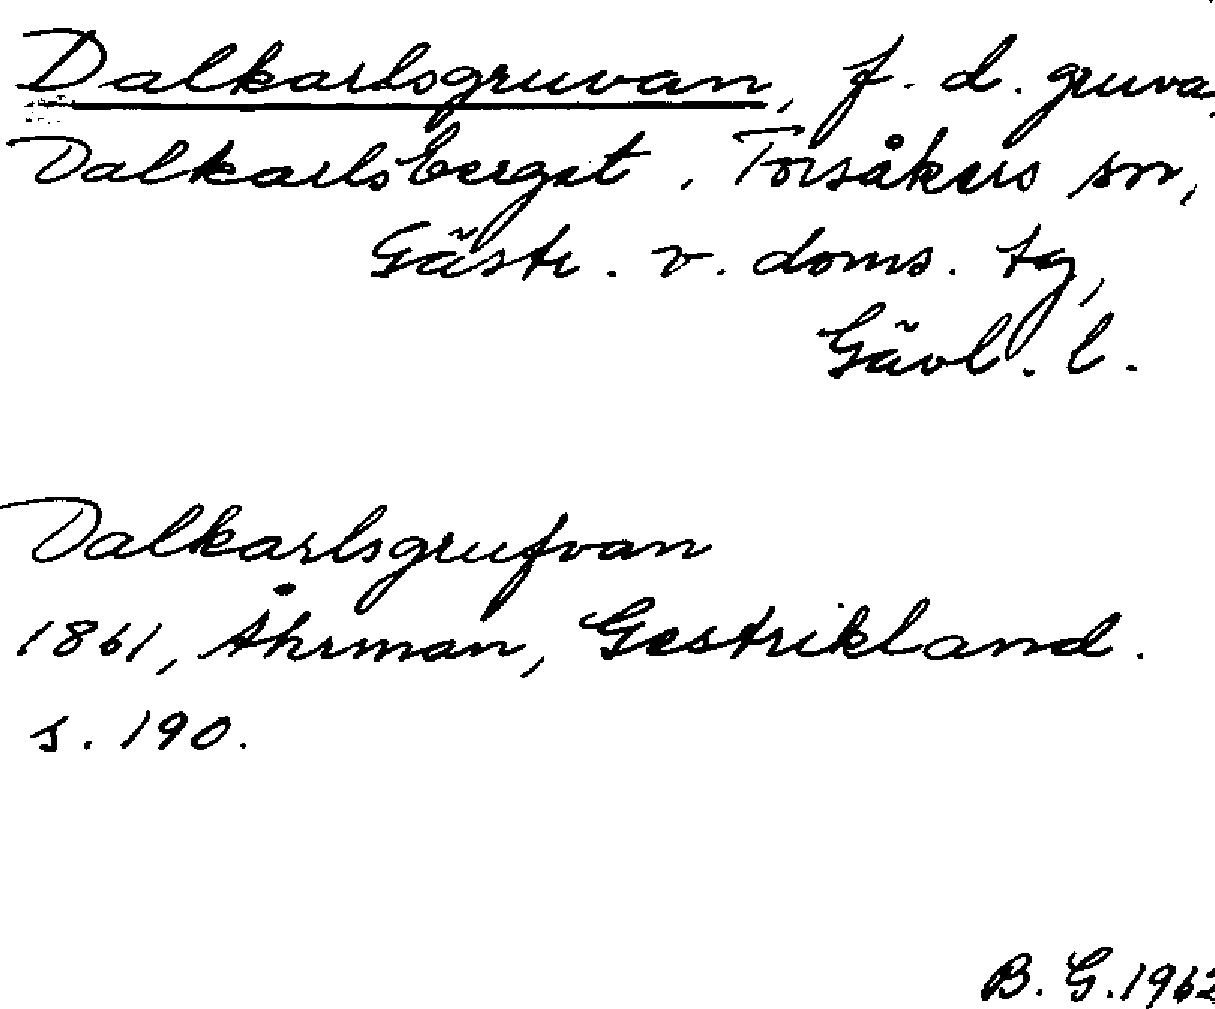 Dalkarlsgruvan, f. d. gruva,
Dalkarlsberget, Torsåkers sn,
Gästr. v. doms. tg,
Gävl. l.
Dalkarlsgrufvan
1861, Åhrman, Gestrikland.
s. 190.
B. G. 1962